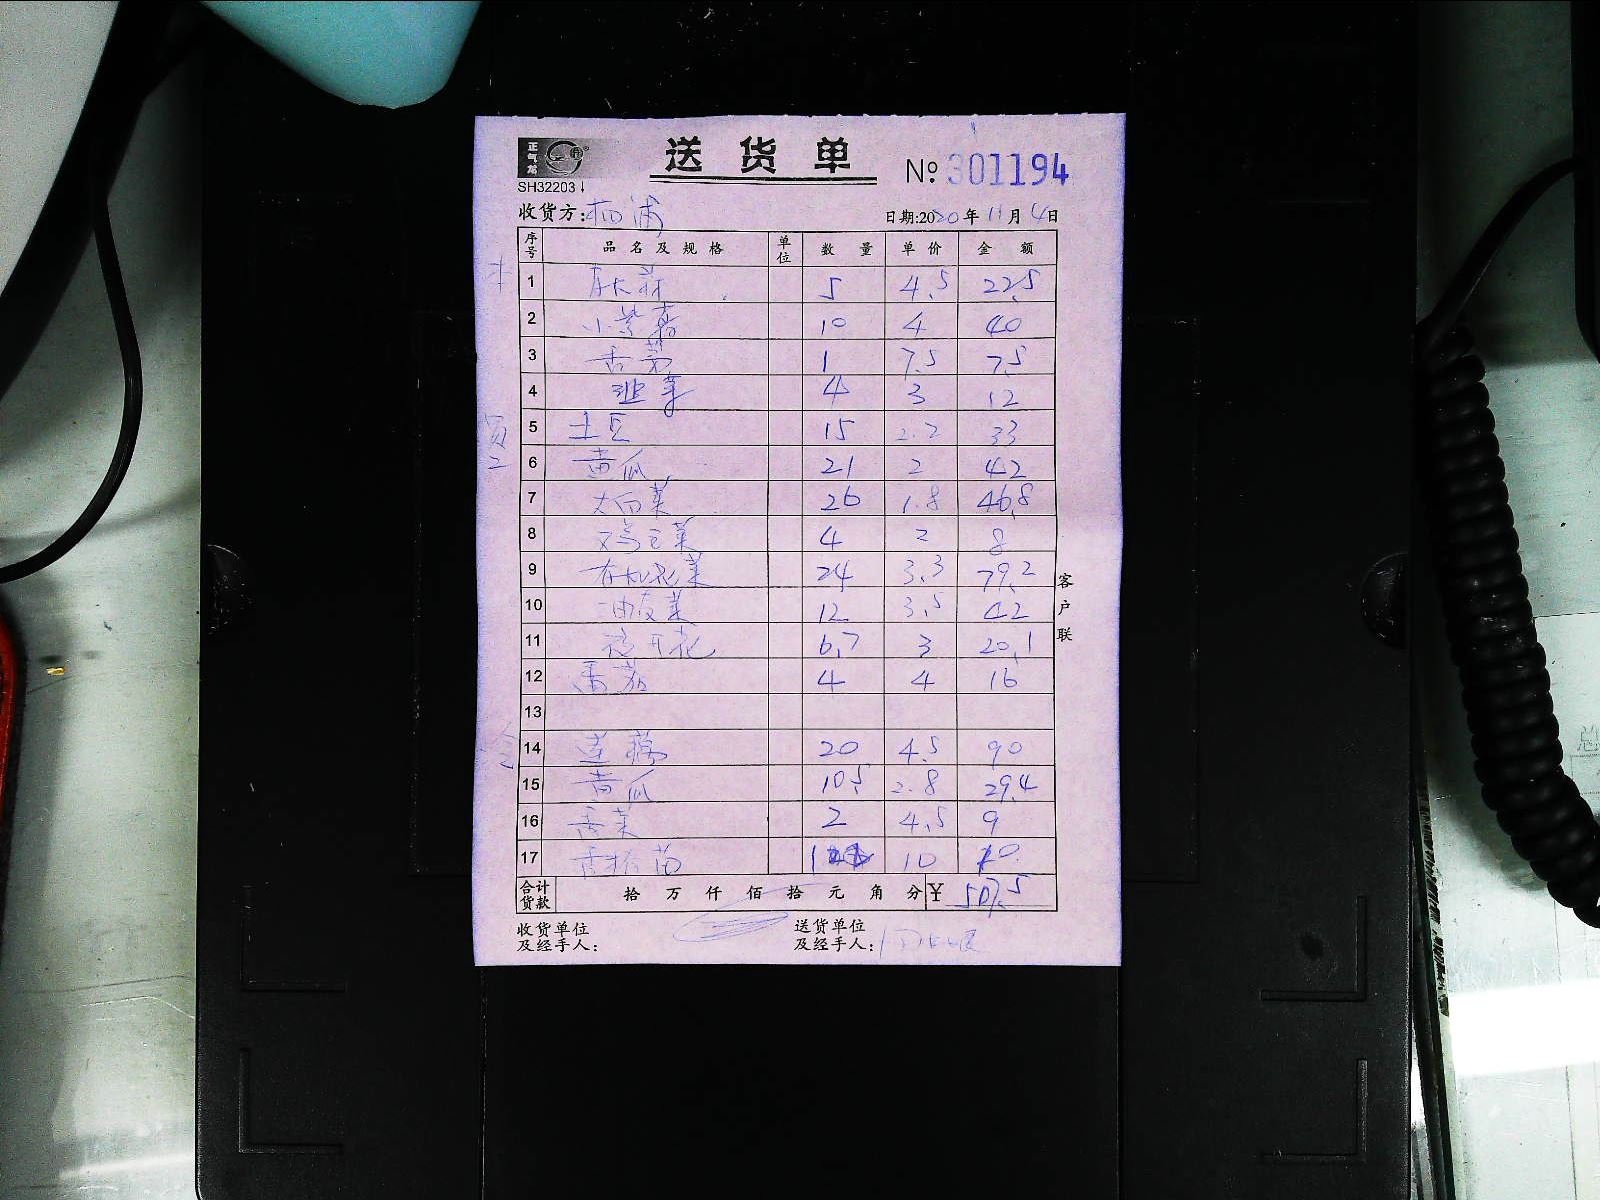 正气龙
送货单
№ 301194
SH32203
收货方: 杨浦
日期:2020年11月4日
序号 品名及规格 单位 数量 单价 金额
1 5 4.5 22.5
2 小紫薯 10 4 40
3 香菊 1 7.5 7.5
4 韭菜 4 3 12
5 土豆 15 2.2 33
6 黄瓜 21 2 42
7 大白菜 26 1.8 46.8
8 菜 4 2 8
9 有机花菜 24 3.3 79.2
10 油麦菜 12 3.5 42
11 6.7 3 20.1
12 番茄 4 4 16
13
14 莲藕 20 4.5 90
15 黄瓜 10.5 2.8 29.4
16 香菜 2 4.5 9
17 1 10 10
合计货款 拾万仟佰拾元角分 ¥ 507.5
收货单位及经手人:
送货单位及经手人:
客户联